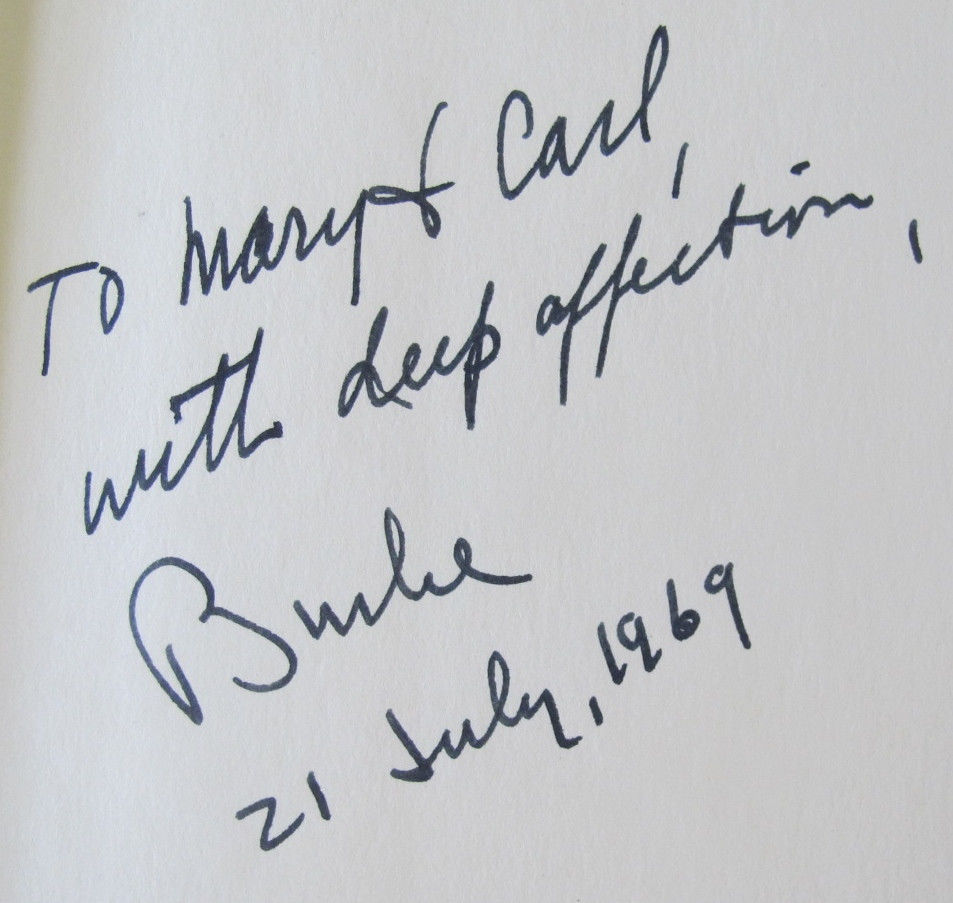 To Mary & Carl,
with deep affection,
Burke
21 July, 1969